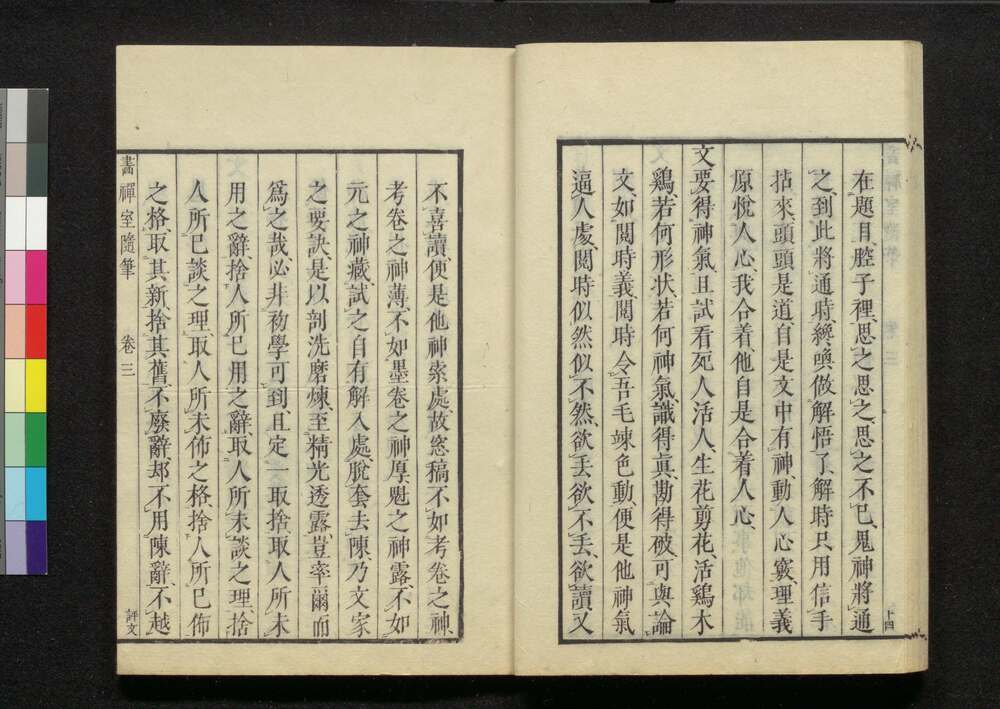 在題目腔子裡、思之思之、思之不已、鬼神將通
之、到此將通時、纔喚做解悟了、解時只用信手
拈來、頭頭是道、自是文中有神、動人心竅、理義
原悅人心、我合着他、自是合着人心、
文要得神氣、且試看死人活人、生花剪花、活鷄木
鷄、若何形狀、若何神氣、識得真、勘得破、可與論
文、如閱時義、閱時令吾毛竦色動、便是他神氣
逼人處、閱時似然似不然、欲丢欲不丢、欲讀又
十四
不喜讀、便是他神索處、故窓稿不如考卷之神、
考卷之神薄、不如墨卷之神厚、魁之神露、不如
元之神藏、試之自有解入處、脫套去陳、乃文家
之要訣、是以剖洗磨煉、至精光透露、豈率爾而
爲之哉、必非初學可到、且定一取捨、取人所未
用之辭、捨人所已用之辭、取人所未談之理、捨
人所已談之理、取人所未佈之格、捨人所已佈
之格、取其新、捨其舊、不廢辭、却不用陳辭、不越
畫禪室隨筆 卷三 評文